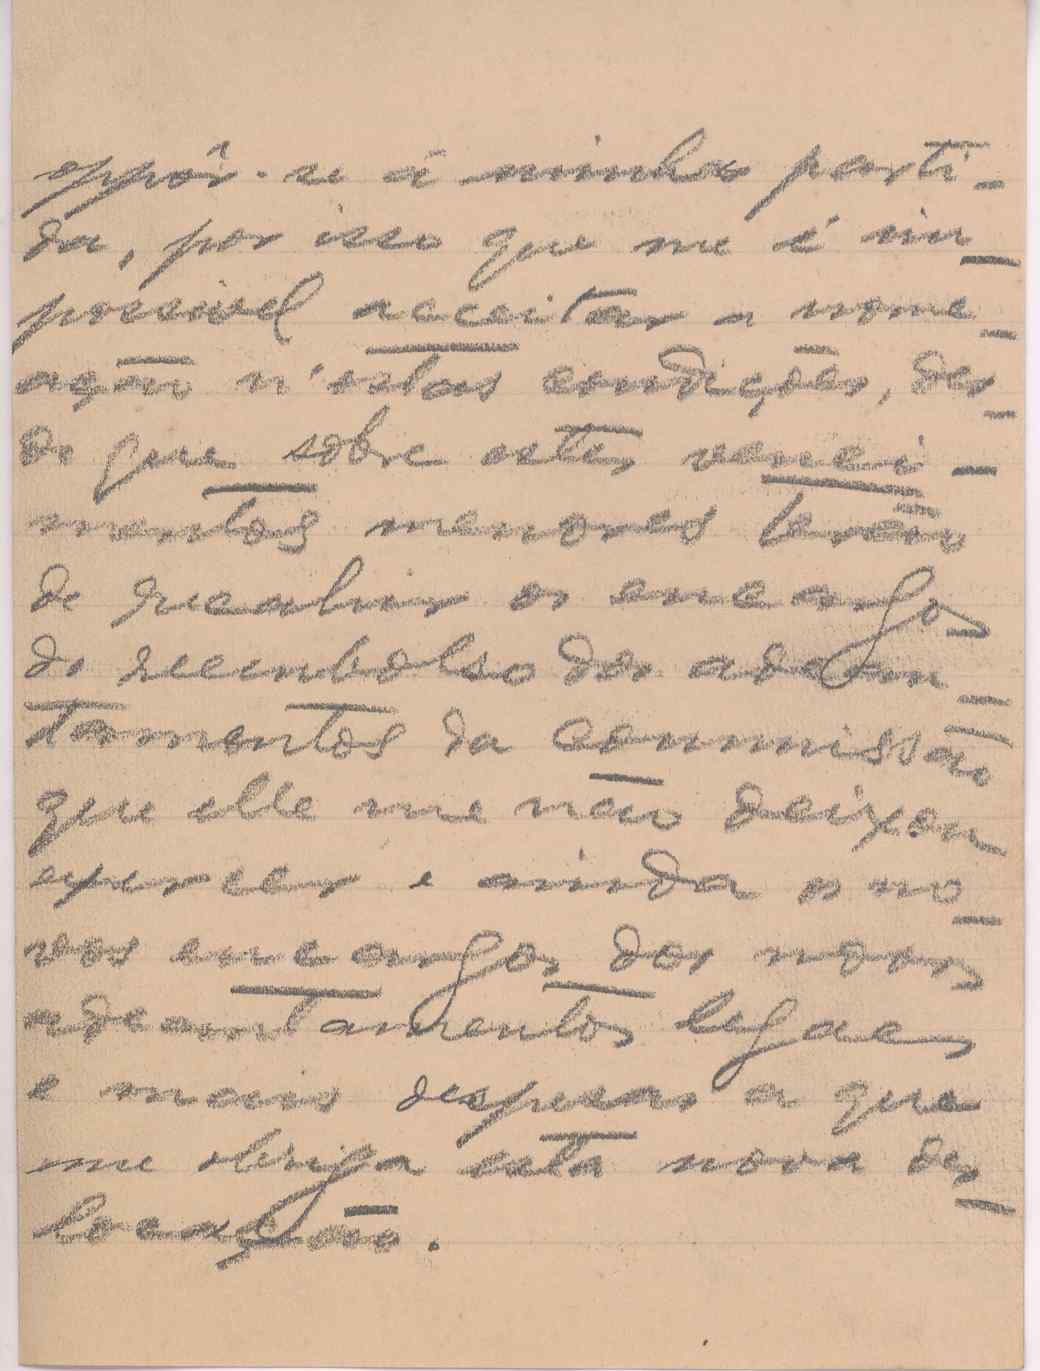 oppôr-se á minha parti-
da, por isso que me é im-
possivel acceitar a nome-
ação n'estas condições, des-
de que sobre estes venci-
mentos menores terão
de recahir os encargos
do reembolso dos adean-
tamentos da commissão
que elle me não deixou
exercer e ainda os no-
vos encargos dos novos
adeantamentos legaes
e mais despezas a que
me obriga esta nova des-
locação.